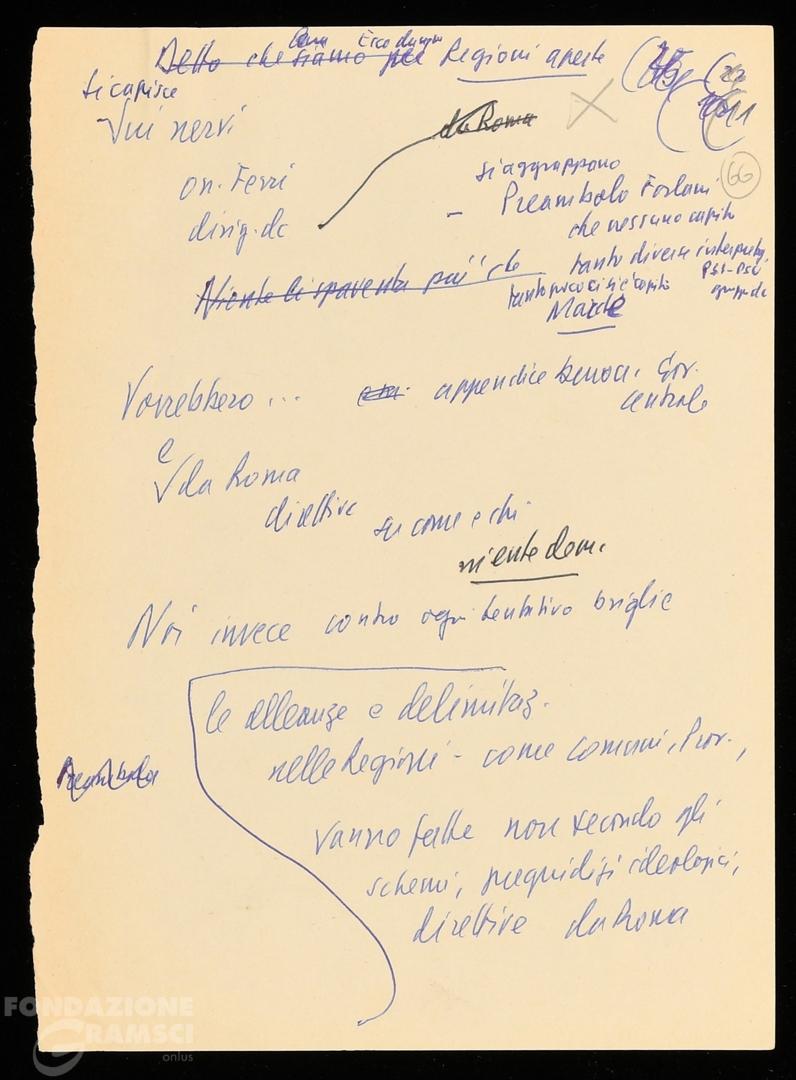 Detto che siamo per Regioni aperte
Ecco dunque
si capisce
Vivi nervi
da Roma
on. Ferri
dirig. dc
66
si aggruppano
- Preambolo Forlani
che nessuno capito
tante diverse interpretaz.
PSI - PSDI
gruppi dc
Niente li spaventa più che
tanto poco ci si è capito
Vorrebbero ... appendice buroc. Gov.
centrale
e
da Roma
direttive su come e chi
niente dem.
Noi invece contro ogni tentativo briglie
le alleanze e delimitaz.
nelle Regioni - come comuni, Prov.,
Preambolo
vanno fatte non secondo gli
schemi, pregiudizi ideologici,
direttive da Roma
FONDAZIONE
GRAMSCI
onlus